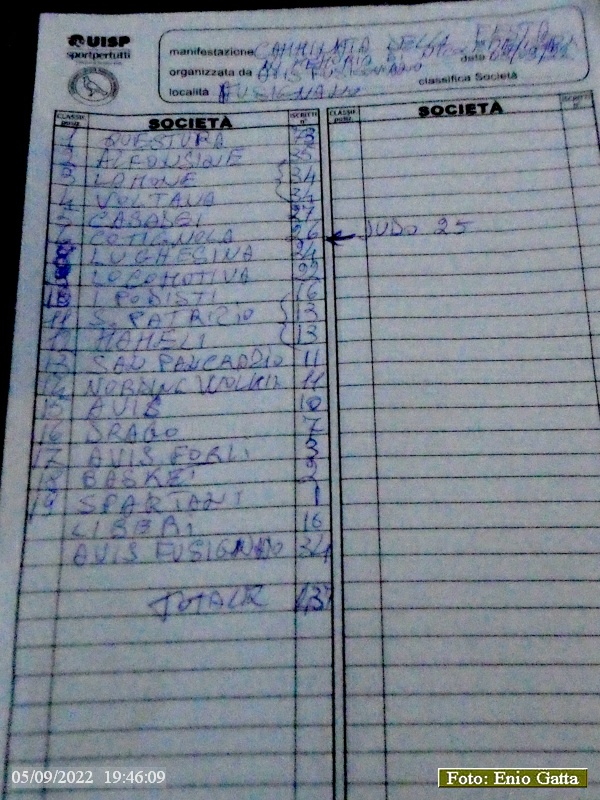 UISP
sportpertutti
manifestazione CAMMINATA DELLA
organizzata da AVIS FUSIGNANO
data
classifica Società
località FUSIGNANO
CLASSIF. SOCIETÀ ISCRITTI n° CLASSIF. SOCIETÀ ISCRITTI
1 QUESTURA
2 ALFONSINE 35
3 LAMONE 34
4 VOLTANA 34
5 CASADEI 27
COTIGNOLA 26 ← JUDO 25
LUGHESINA 24
LOCOMOTIVA 22
10 I PODISTI 16
11 S. PATRIZIO 13
12 MAMELI 13
13 SAN PANCRAZIO 11
14 NORDING WALKIN 11
15 AVIS 10
16 DRAGO 7
17 AVIS FORLI 3
18 BASKET 2
19 SPARTANI 1
LIBERI 16
AVIS FUSIGNANO 34
TOTALE
05/09/2022 19:46:09
Foto: Enio Gatta